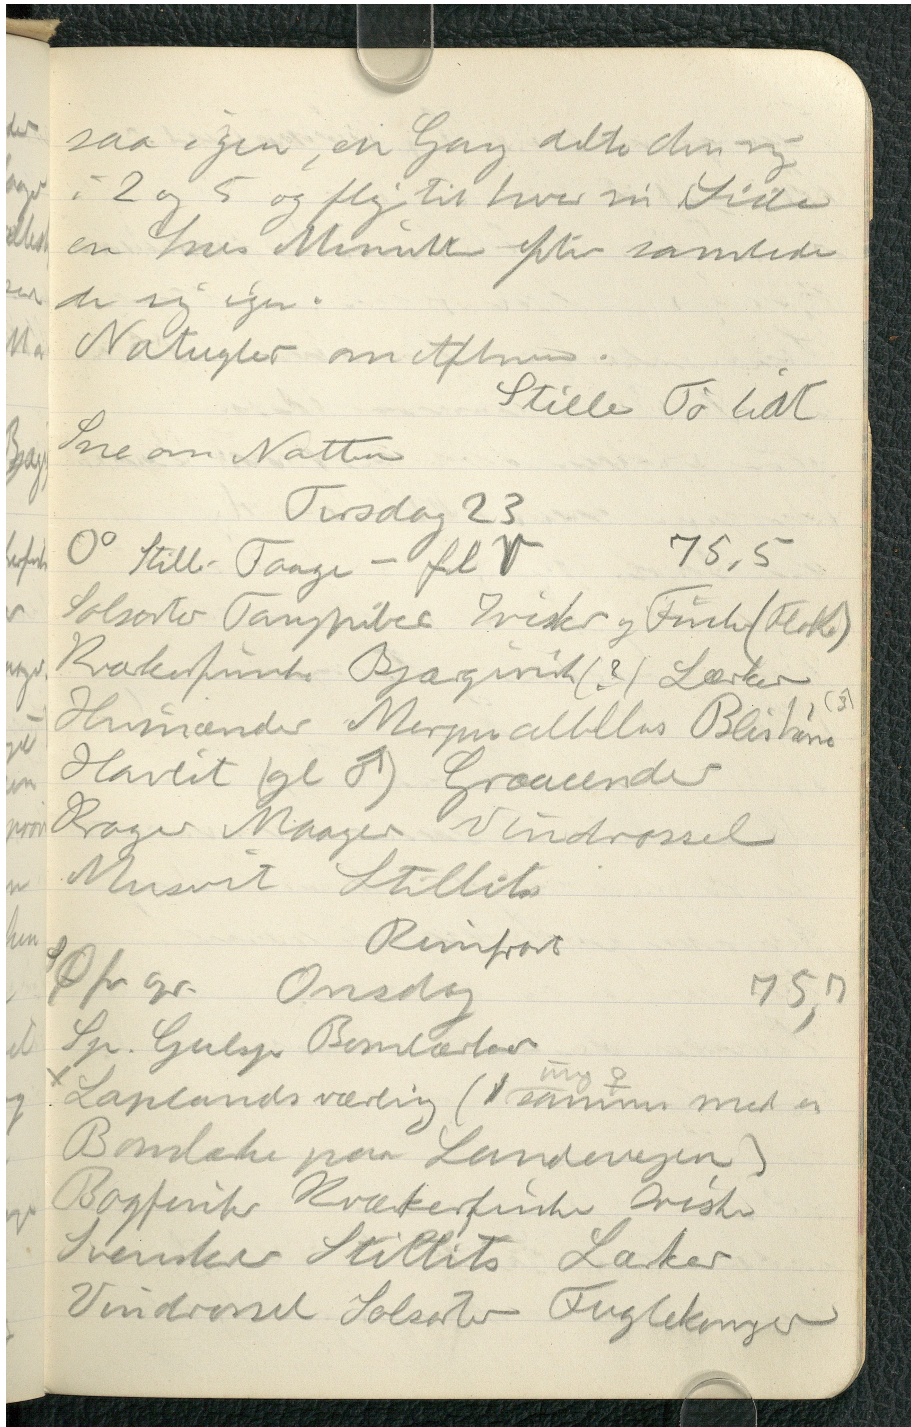 saa igen, en Gang delte den sig
i 2 og 5 og fløj til hver sin Side
en Snes Minutter efter samlede
de sig igen.
Natugler om Aftnen.
Stille Tø lidt
Sne om Natten
Tirsdag 23
0° Stille Taage - fl V 75,5
Solsorter Tangpiber Irisker og Finke (Flokke)
Kvækerfinke Bjærgirisk (?) Lærker
Hvinænder Mergus albellus Blishøns (3)
Havlit (gl ♂) Graaænder
Krager Maager Vindrossel
Musvit Stillits
Rimfrost
0 fr gr. Onsdag 75,7
Sp. Gulsp. Bomlærker
x Laplandsværling (1 ung ♀ sammen med en
Bomlærke paa Landevejen)
Bogfinke Kvækerfinke Iriske
Svenskere Stillits Lærker
Vindrossel Solsorter Fuglekonger